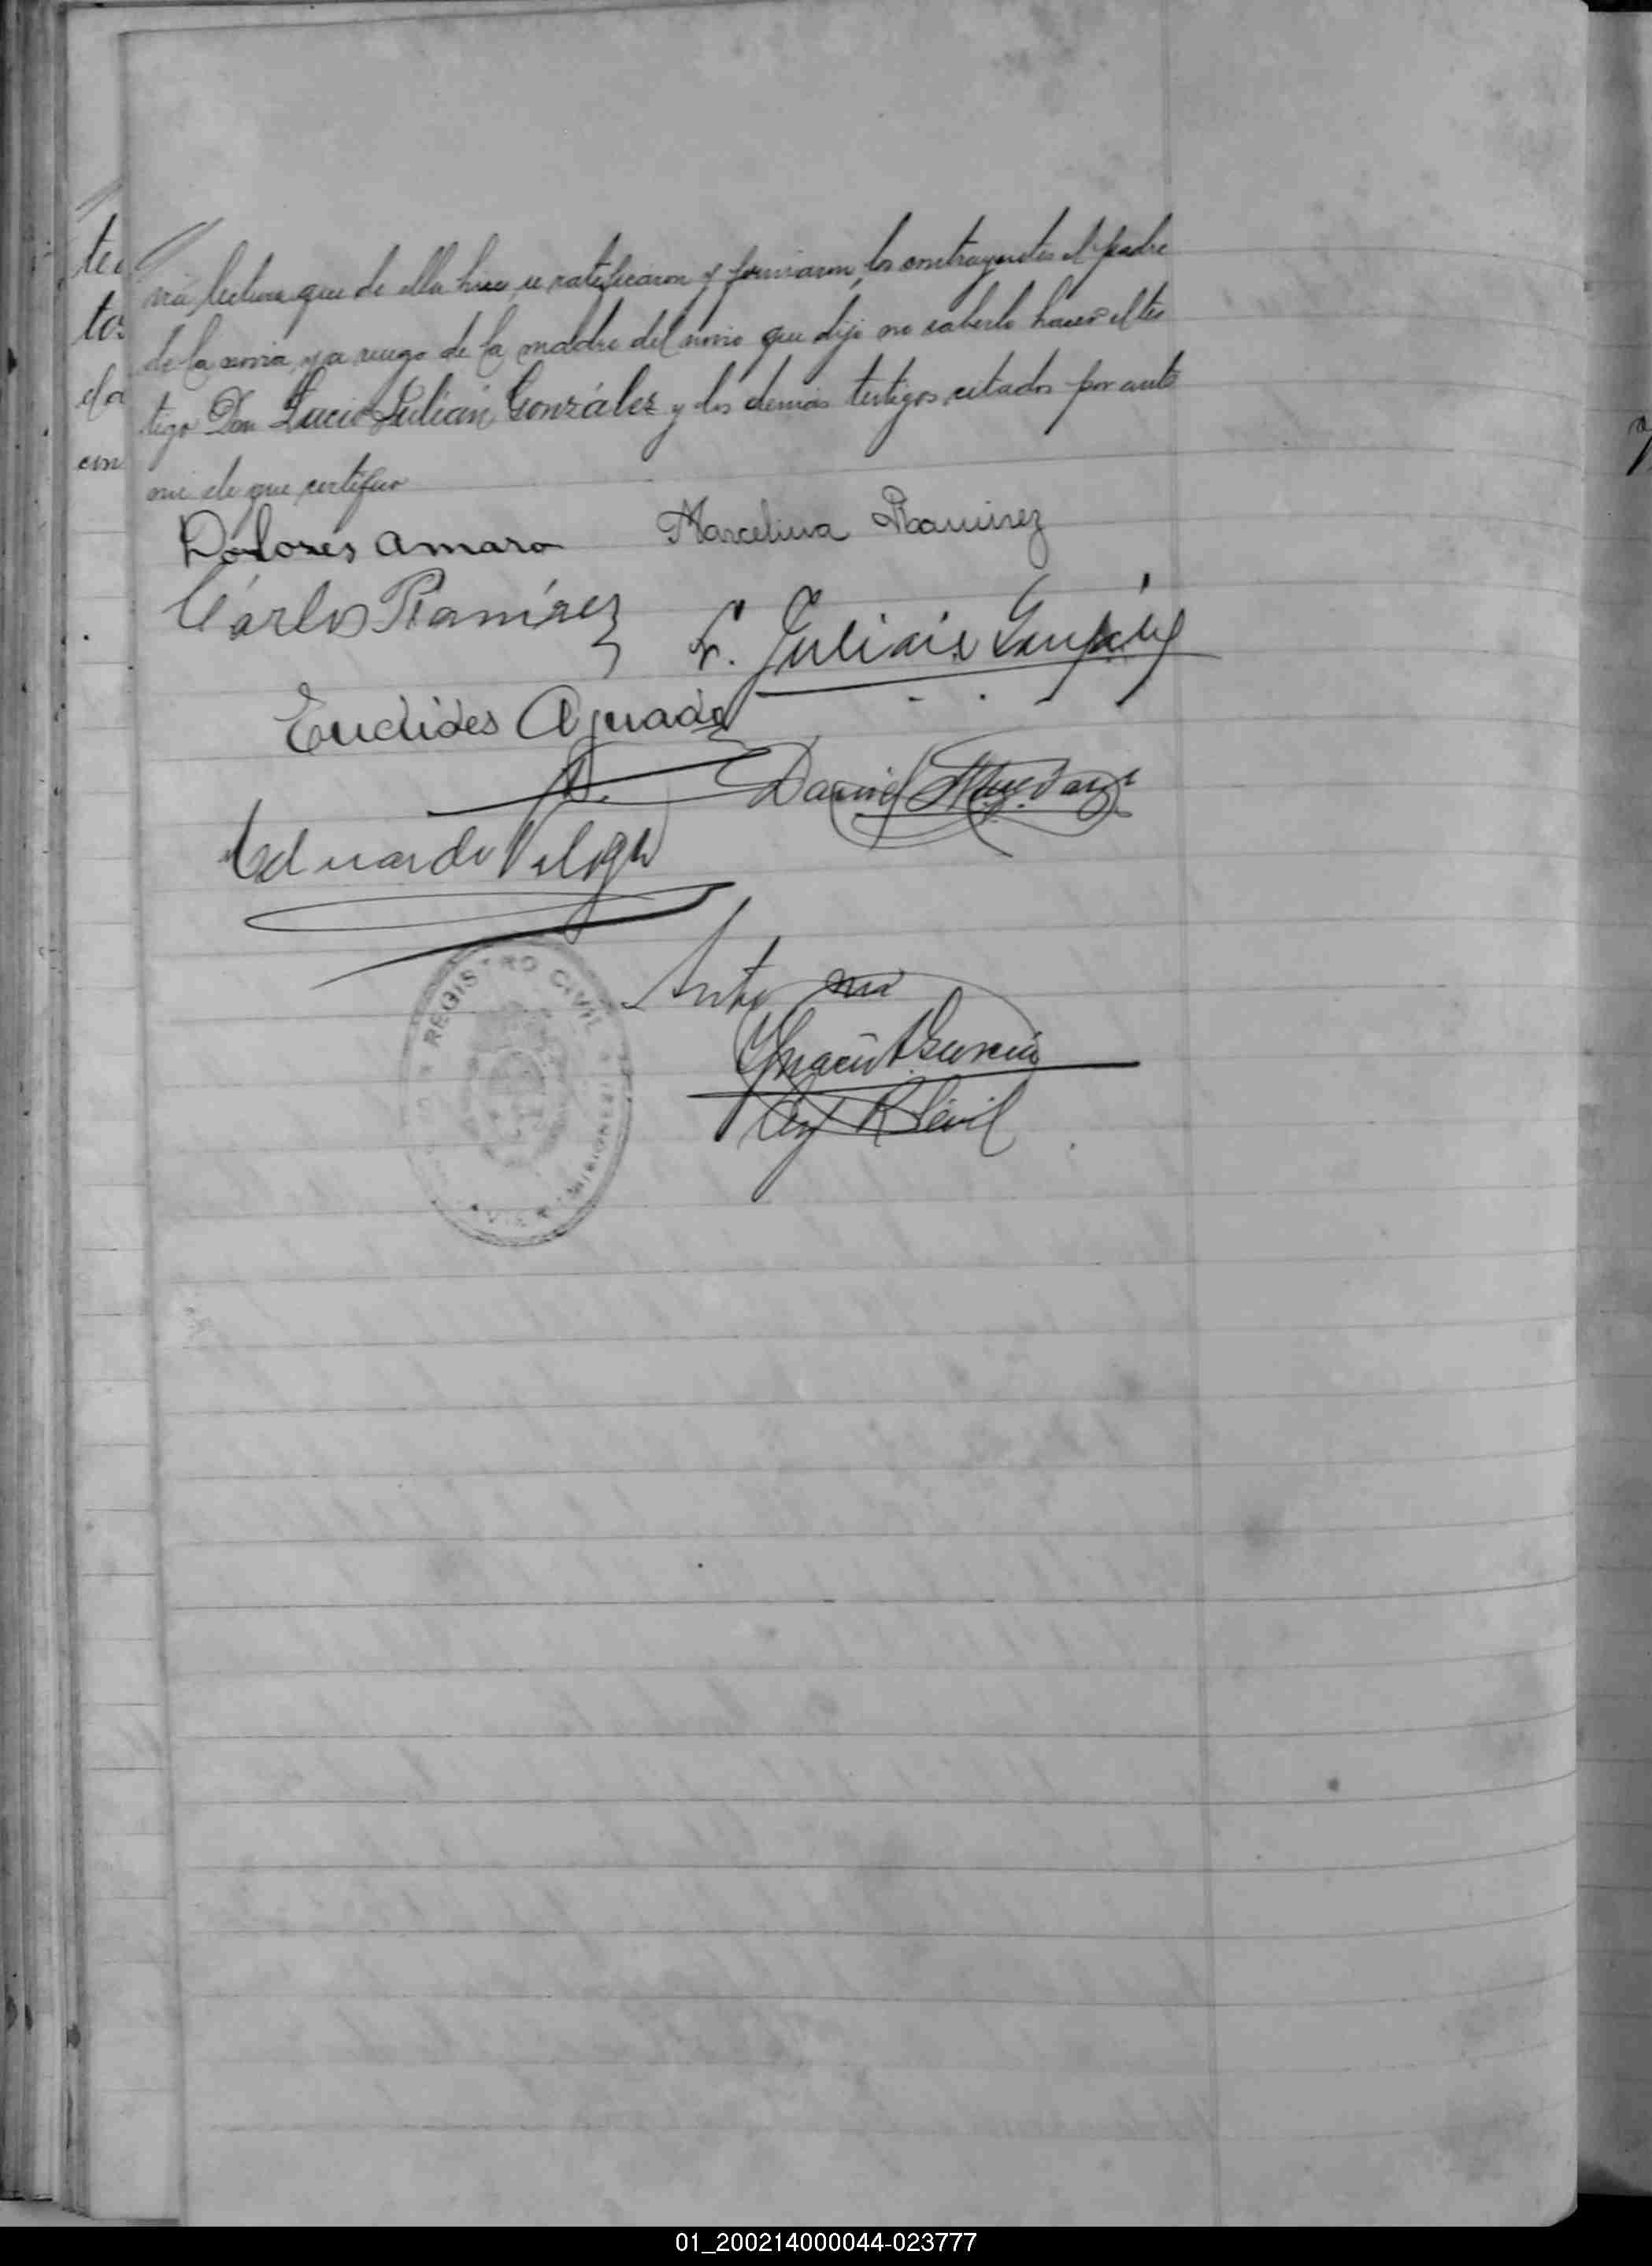 via lectura que de ella hice, se ratificaron y firmaron, los contrayentes el padre
de la novia, y a ruego de la madre del novio que dijo no saberlo hacer el tes
tigo Don Lucio Julián González y los demás testigos citados por ante
mi de que certifico
Dolores Amaro Marcelina Ramirez
Cárlos Ramírez L. Julián González
Euclides Aguado
Daniel
Eduardo
Ante mi
Ignacio A. García
R Civil
REGISTRO CIVIL
MISIONES
01_200214000044-023777